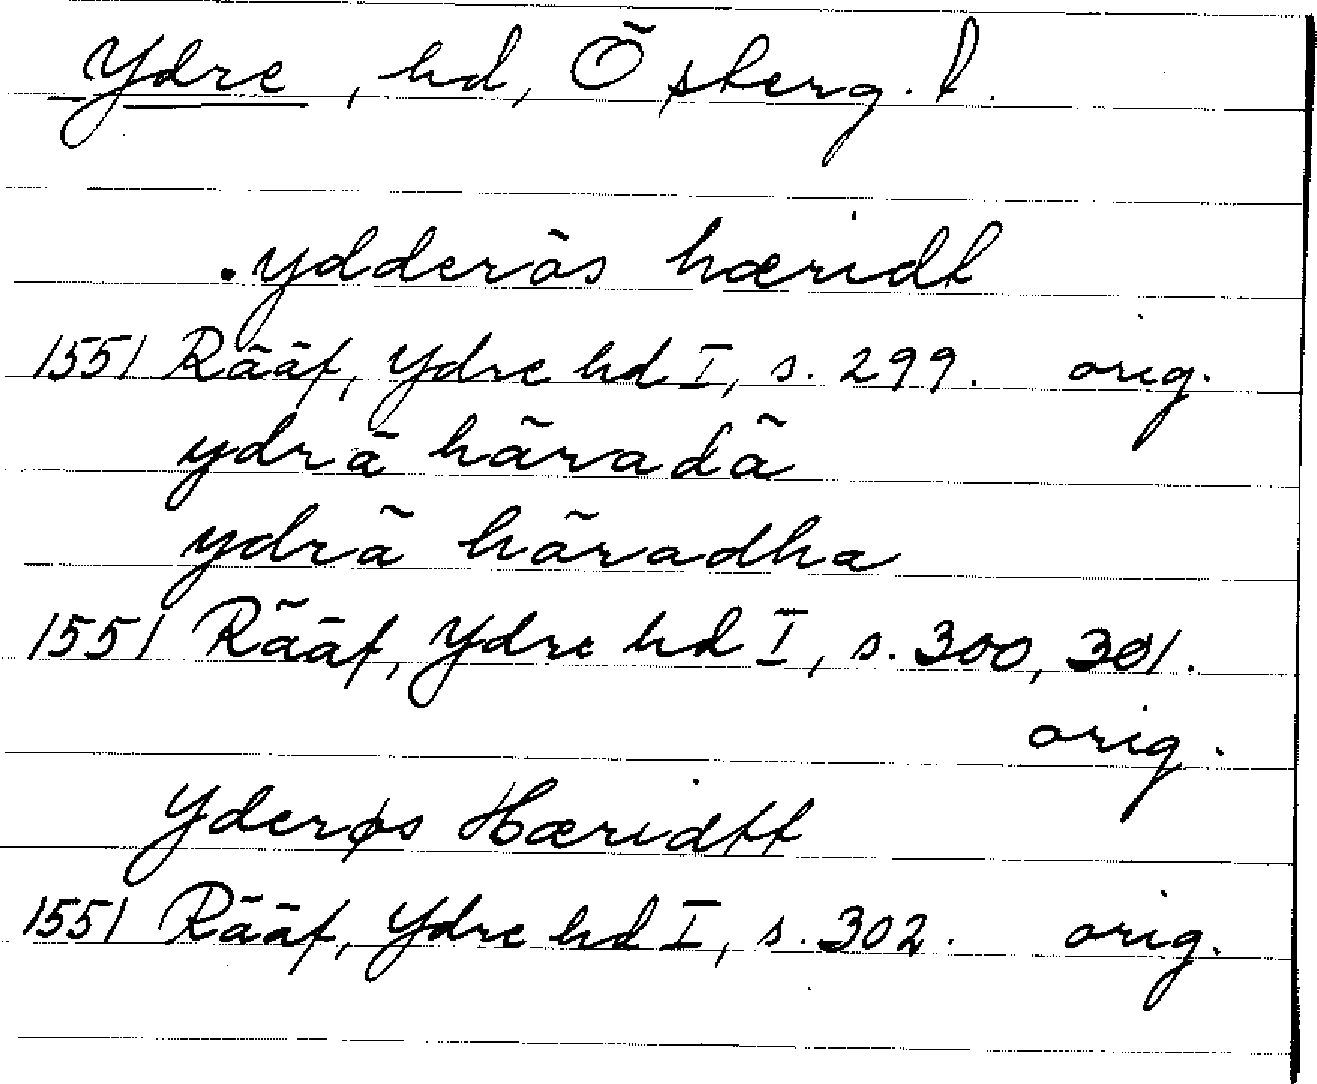 Ydre, hd, Österg. l.
. ydderös hæridt
1551 Rääf, Ydre hd I, s. 299. orig.
ydrä häradä
ydrä häradha
1551 Rääf, Ydre hd I, s. 300, 301.
orig.
Yderøs Hæridtt
1551 Rääf, Ydre hd I, s. 302. orig.